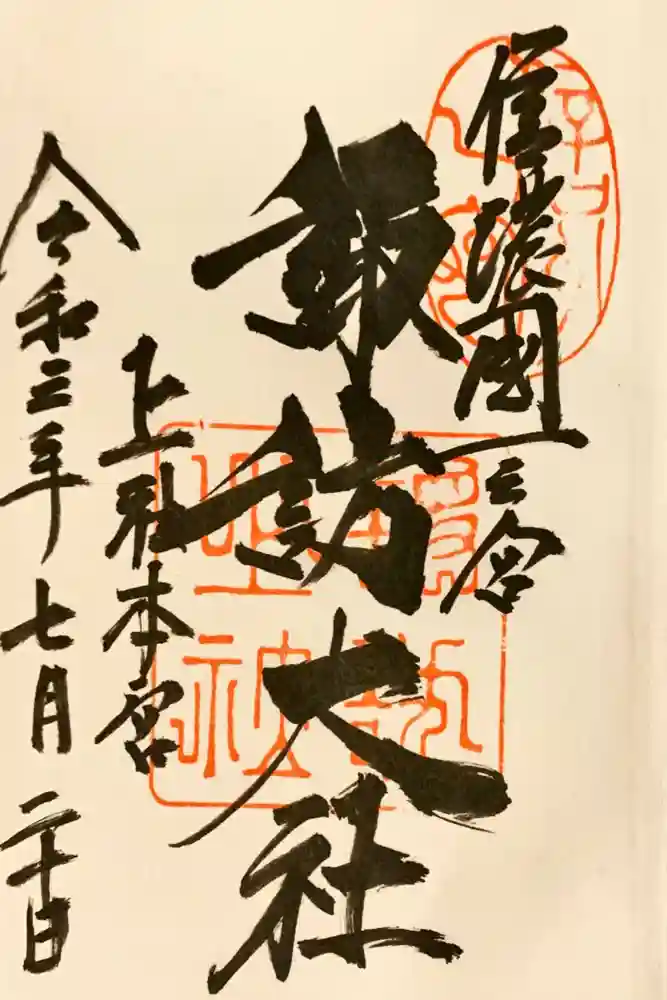 信濃國一之宮
諏訪大社
上社本宮
令和三年七月二十日